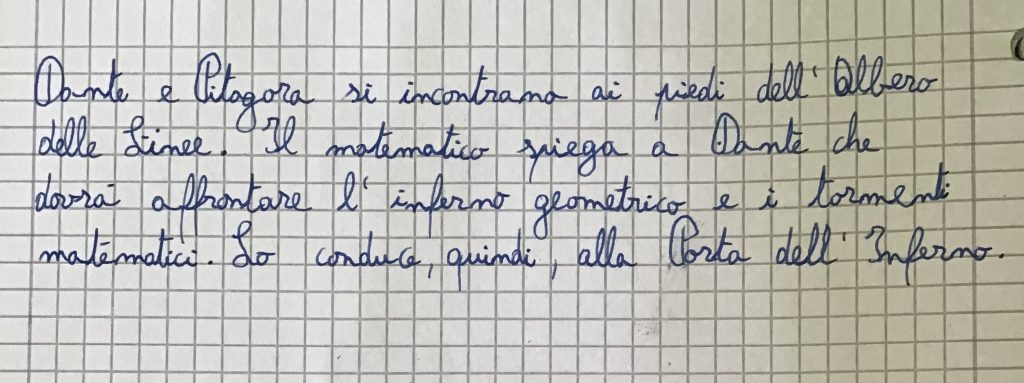 Dante e Pitagora si incontrano ai piedi dell'Albero
delle Linee. Il matematico spiega a Dante che
dovrà affrontare l'inferno geometrico e i tormenti
matematici. Lo conduce, quindi, alla Porta dell'Inferno.